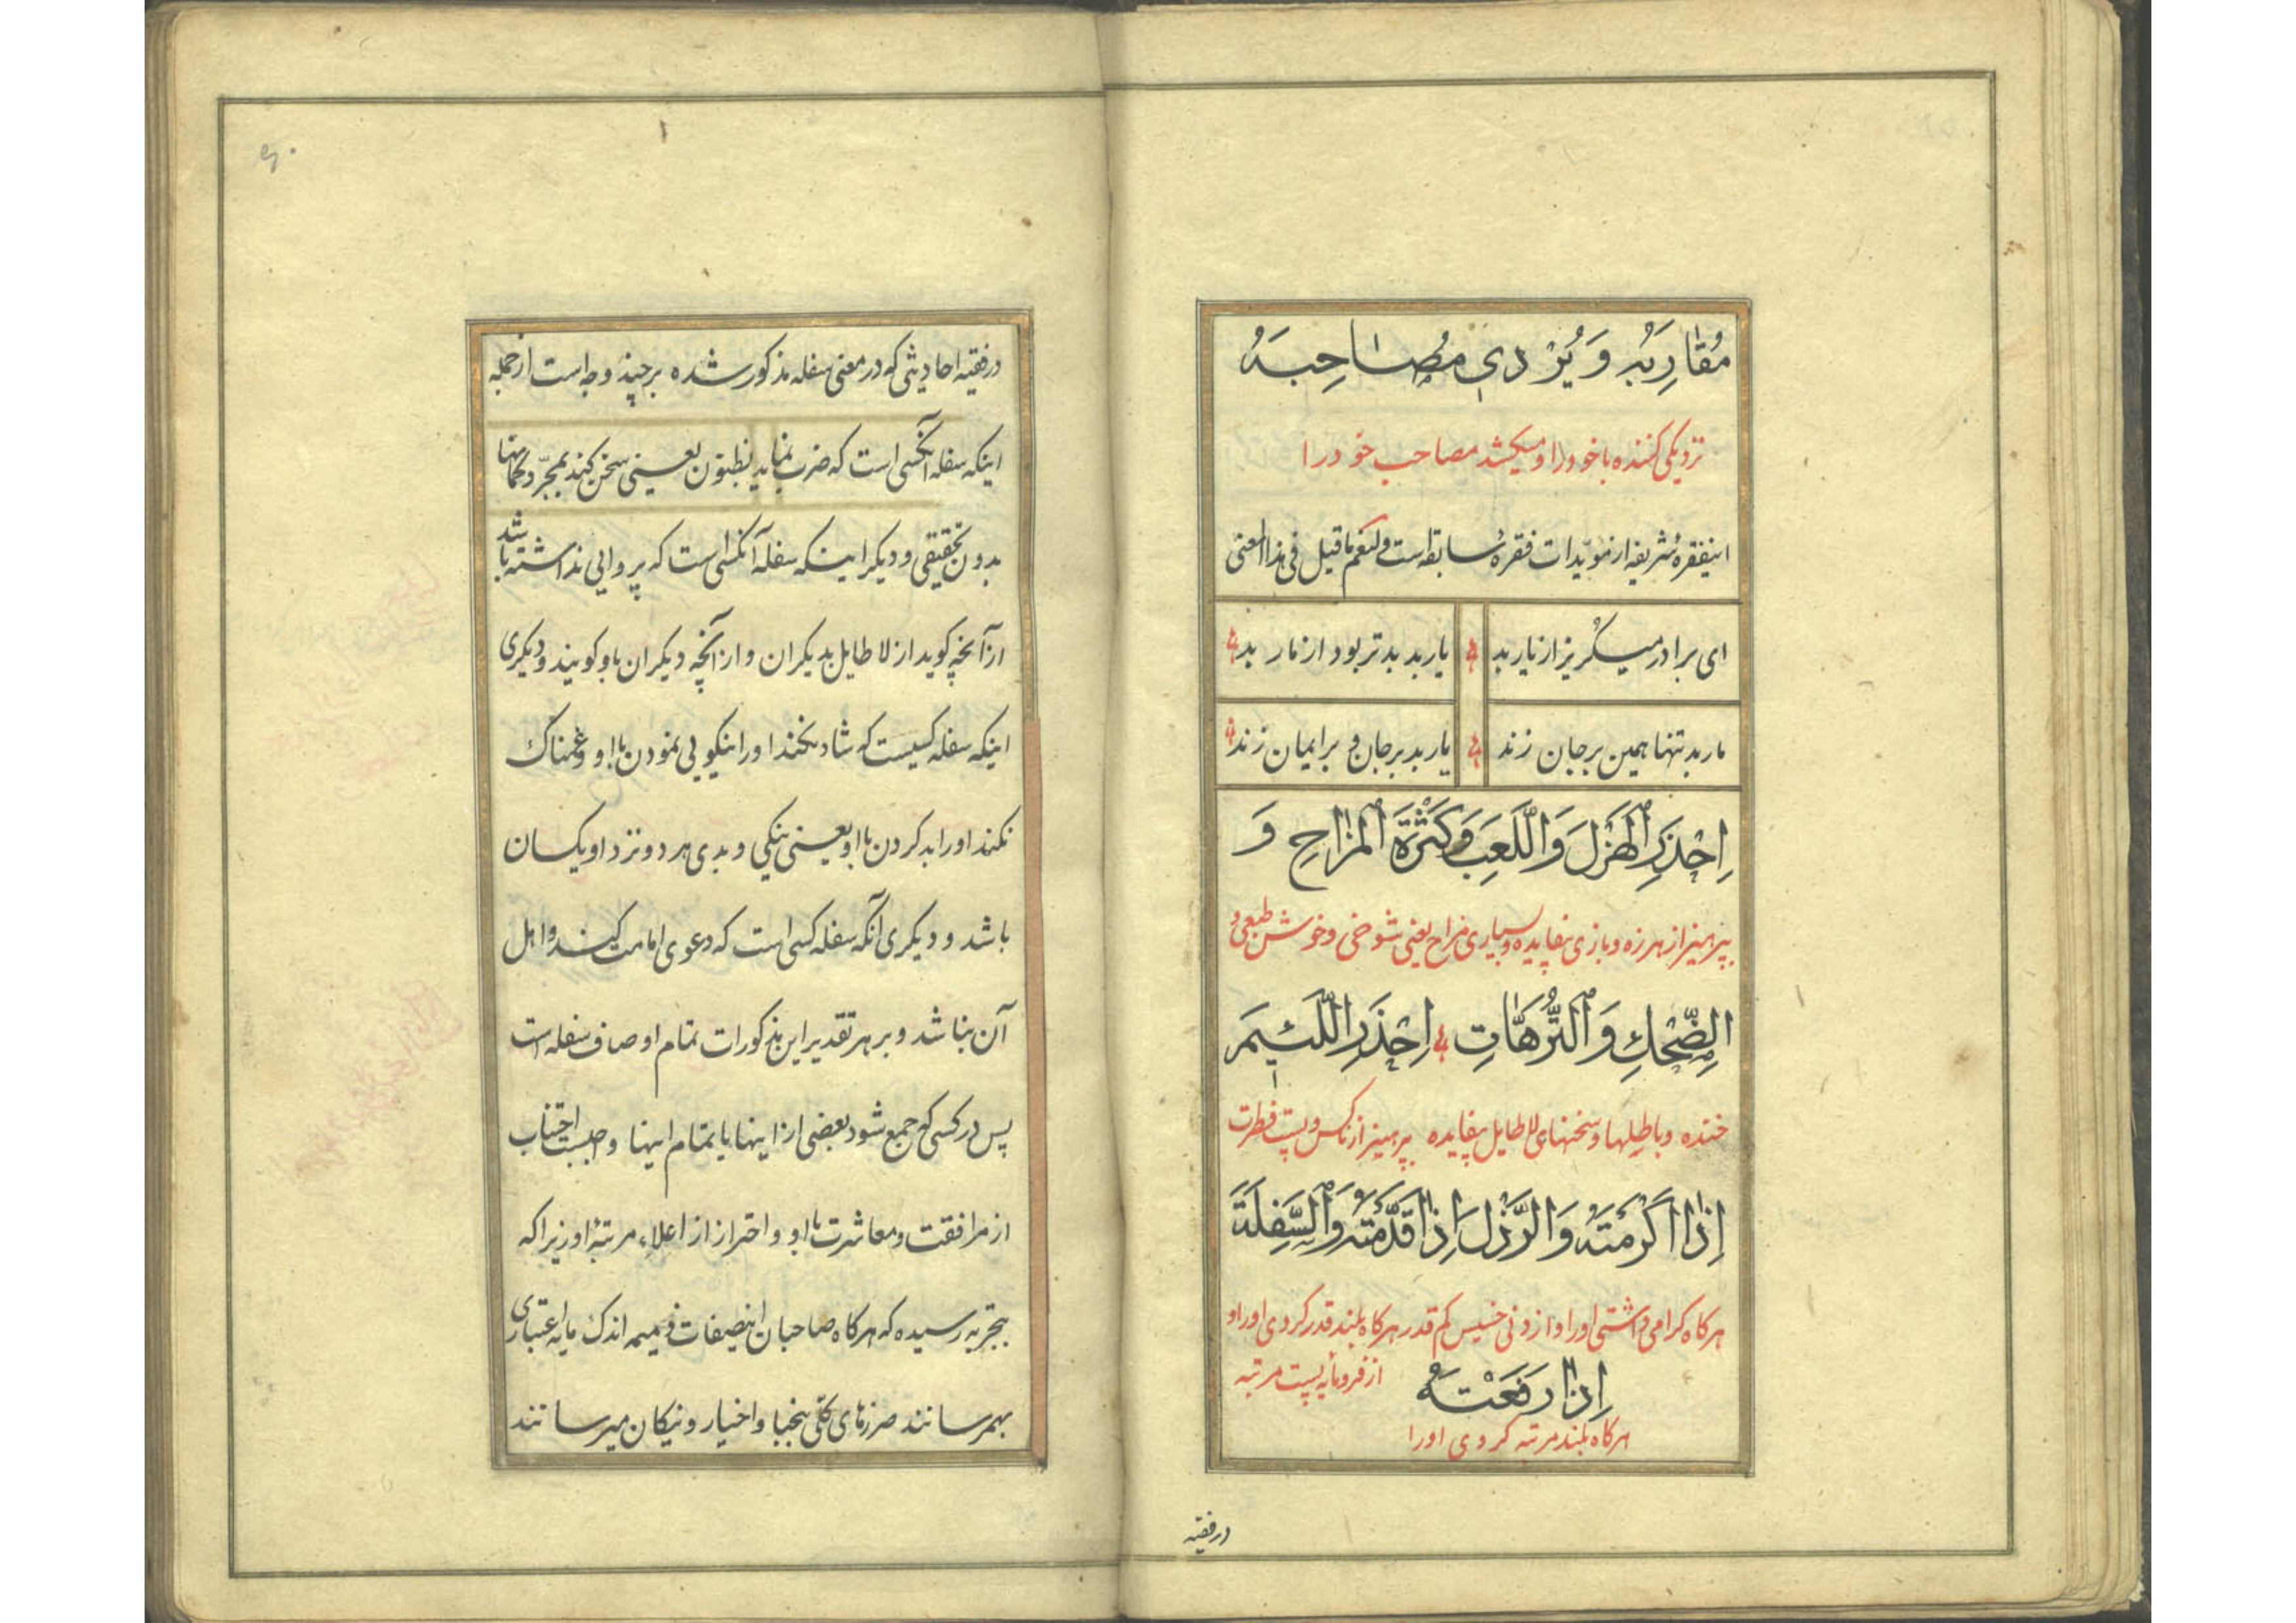 مُقَارِبَهُ وَ يُرْدِي مُصَاحِبَهُ
نزدیکی کننده با خود را و میکشد مصاحب خود را
اینفقرهٔ شریفه از مؤیّدات فقرهٔ سابقه است و لنعم ما قیل فی هذا المعنی
ای برادر میگریز از یار بد یار بد بدتر بود از مار بد
مار بد تنها همین بر جان زند یار بد بر جان و بر ایمان زند
اِحْذَرِ الْهَزْلَ وَاللَّعِبَ وَكَثْرَةَ الْمَزَاحِ وَ
بپرهیز از هرزه و بازی بیفایده و بسیاری مزاح یعنی شوخی و خوش طبعی و
الضِّحْكِ وَالتُّرَّهَاتِ اِحْذَرِ اللَّئِیمَ
خنده و باطلها و سخنهای لا طایل بیفایده بپرهیز از ناکس و پست فطرت
اِذَا اَكْرَمْتَهُ وَالرَّذْلَ اِذَا قَدَّمْتَهُ وَالسِّفْلَةَ
هرکاه کرامی داشتی او را و از دنی خسیس کم قدر هرکاه بلند قدر کردی او را و
از فرومایه پست مرتبه
اِذَا رَفَعْتَهُ
هرکاه بلند مرتبه کردی او را
درفقیه
درفقیه احادیثی که در معنی سفله مذکور شده بر چند وجه است از جمله
اینکه سفله آنکسی است که ضرب نماید بطنون یعنی سخن کند بمجرّد کمانها
بدون تحقیقی و دیکر اینکه سفله آنکسی است که پروایی نداشته باشد
از آنچه کوید از لا طایل بدیکران و از آنچه دیکران باو کویند و دیکری
اینکه سفله کسیست که شاد نکند او را نیکویی نمودن باو و غمناک
نکند او را بد کردن باو یعنی نیکی و بدی هر دو نزد او یکسان
باشد و دیکری آنکه سفله کسی است که دعوی امامت کند و اهل
آن نباشد و بر هر تقدیر این مذکورات تمام اوصاف سفله است
پس در کسی که جمع شود بعضی از اینها یا تمام اینها واجبست اجتناب
از مرافقت و معاشرت با او و احتراز از اعلاء مرتبهٔ او زیرا که
بتجربه رسیده که هرکاه صاحبان اینصفات ذمیمه اندک مایه اعتباری
بهمرسانند ضررهای کلّی بنجبا و اخیار و نیکان میرسانند